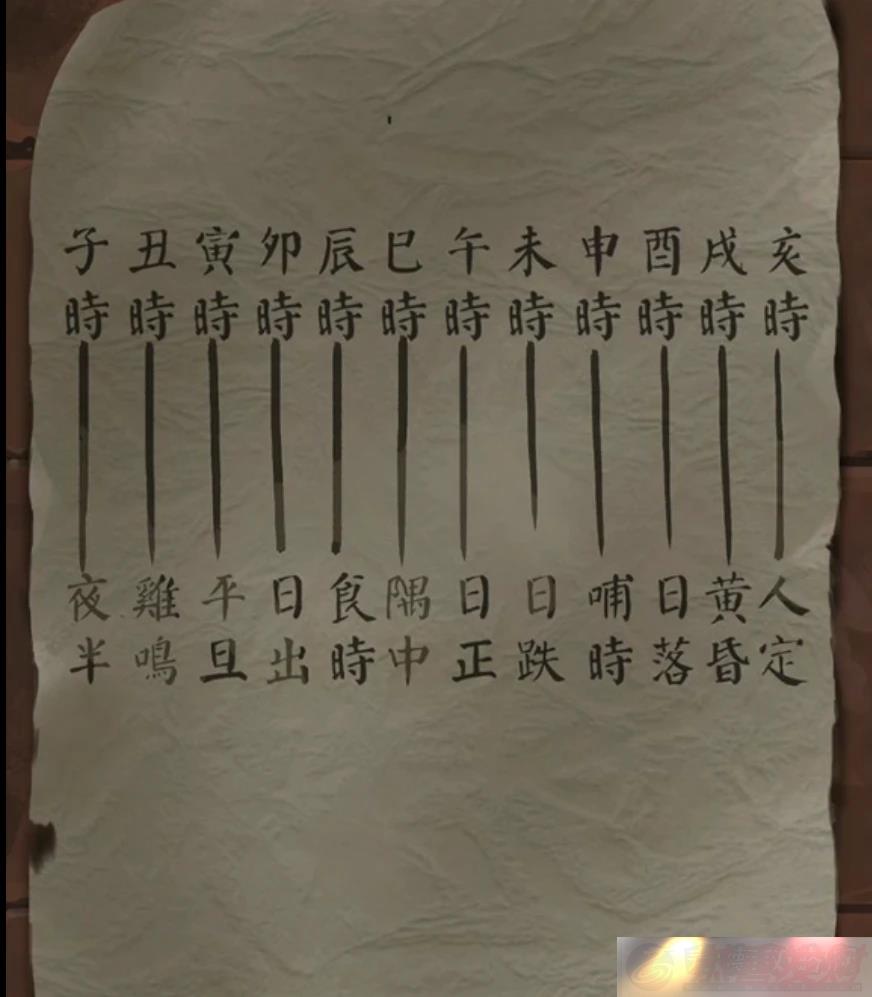 子時 丑時 寅時 卯時 辰時 巳時 午時 未時 申時 酉時 戌時 亥時
夜半 雞鳴 平旦 日出 食時 隅中 日正 日跌 哺時 日落 黃昏 人定